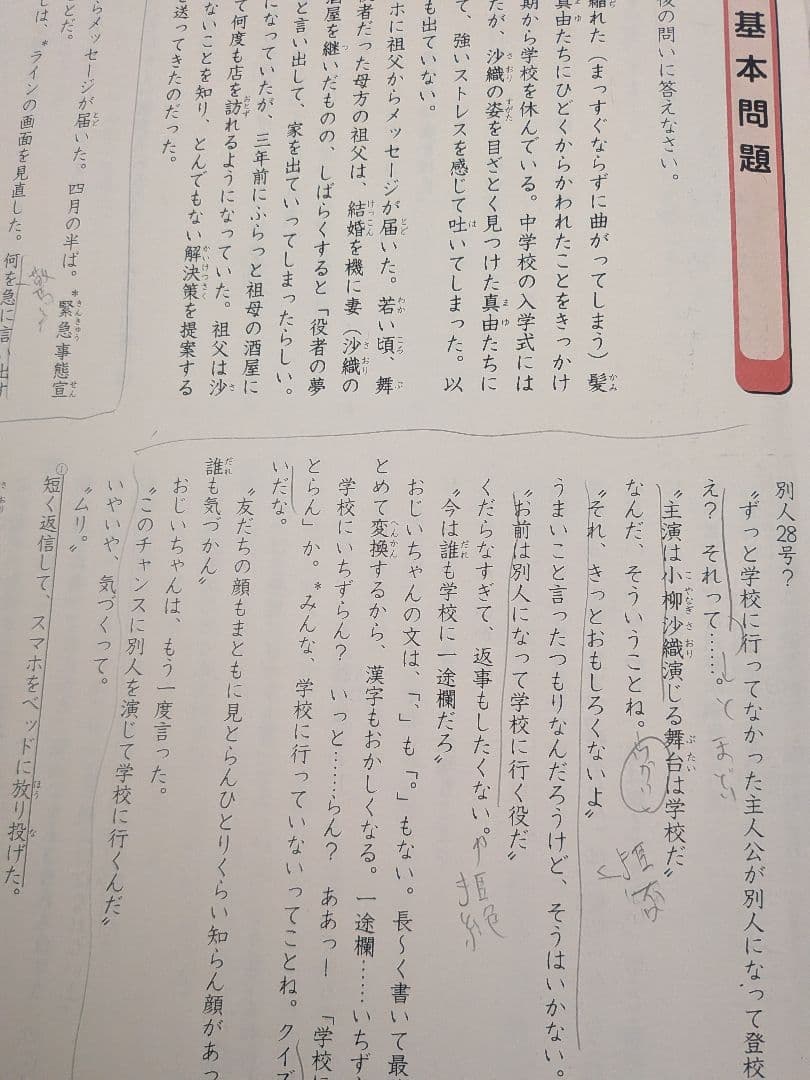 基本問題
後の問いに答えなさい。
縮れた（まっすぐならずに曲がってしまう）髪
真由たちにひどくからかわれたことをきっかけ
期から学校を休んでいる。中学校の入学式には
たが、沙織の姿を目ざとく見つけた真由たちに
て、強いストレスを感じて吐いてしまった。以
も出ていない。
ホに祖父からメッセージが届いた。若い頃、舞
者だった母方の祖父は、結婚を機に妻（沙織の
酒屋を継いだものの、しばらくすると「役者の夢
と言い出して、家を出ていってしまったらしい。
になっていたが、三年前にふらっと祖母の酒屋に
て何度も店を訪れるようになっていた。祖父は沙
ないことを知り、とんでもない解決策を提案する
を送ってきたのだった。
らメッセージが届いた。四月の半ば。*緊急事態宣
とだ。
しは、*ラインの画面を見直した。何を急に言い出す
別人28号？
〝ずっと学校に行ってなかった主人公が別人になって登校
え？　それって……。
とまどい
〝主演は小柳沙織演じる舞台は学校だ〟
なんだ、そういうことね。
〝それ、きっとおもしろくないよ〟
うまいこと言ったつもりなんだろうけど、そうはいかない。
〝お前は別人になって学校に行く役だ〟
くだらなすぎて、返事もしたくない。
拒絶
〝今は誰も学校に一途欄だろ〟
おじいちゃんの文は、「、」も「。」もない。長〜く書いて最
とめて変換するから、漢字もおかしくなる。一途欄……いちず
学校にいちずらん？　いっと……らん？　ああっ！　「学校に
とらん」か。*みんな、学校に行っていないってことね。クイズ
いだな。
〝友だちの顔もまともに見とらんひとりくらい知らん顔があっ
誰も気づかん〟
おじいちゃんは、もう一度言った。
〝このチャンスに別人を演じて学校に行くんだ〟
いやいや、気づくって。
〝ムリ。〟
①短く返信して、スマホをベッドに放り投げた。